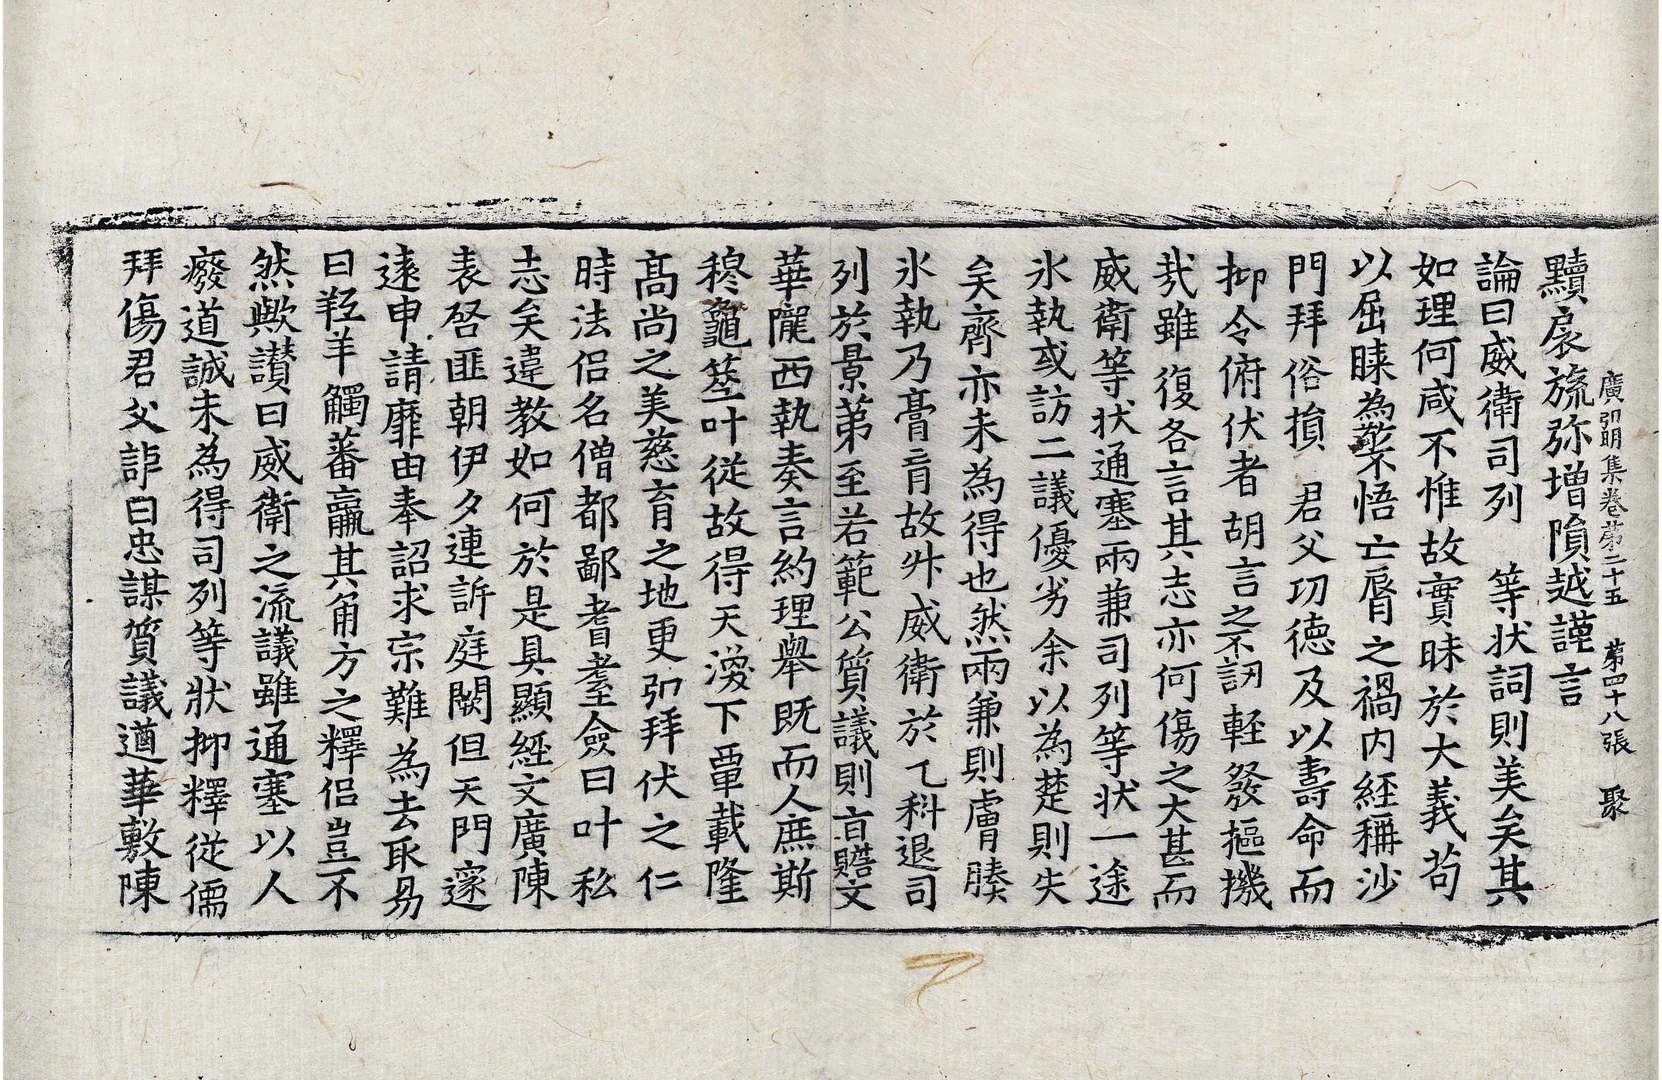 廣弘明集卷第二十五 第四十八張 聚
黷扆旒弥增隕越謹言
論曰威衛司列 等状詞則美矣其
如理何咸不惟故實昧於大義苟
以屈膝為敬不悟亡脣之禍内経稱沙
門拜俗損 君父功徳及以壽命而
抑令俯伏者胡言之不訒軽發樞機
㢤雖復各言其志亦何傷之大甚而
威衛等状通塞兩兼司列等状一途
氷執或訪二議優劣余以為楚則失
矣齊亦未為得也然兩兼則膚腠
氷執乃膏肓故升威衛於乙科退司
列於景第至若範公質議則言贍文
華隴西執奏言約理舉既而人庶斯
穆龜筮叶従故得天渙下覃載隆
髙尚之美慈育之地更弘拜伏之仁
時法侣名僧都鄙耆耋僉曰叶私
志矣違教如何於是具顯経文廣陳
表啓匪朝伊夕連訴庭闕但天門邃
逺申請靡由奉詔求宗難為去取易
曰羝羊觸蕃羸其角方之釋侣豈不
然歟讃曰威衛之流議雖通塞以人
癈道誠未為得司列等狀抑釋従儒
拜傷君父詎曰忠謀質議遒華敷陳